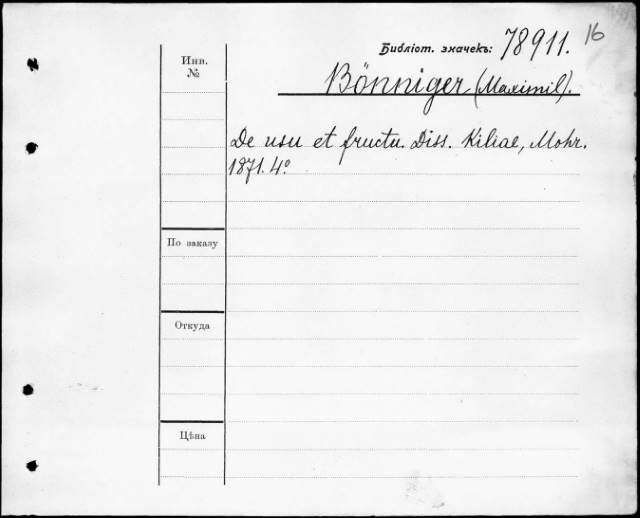 16
Библіот. значекъ: 78911.
Инв.
№
Bönniger (Maximil).
De usu et fructu. Diss. Kiliae, Mohr.
1871. 4º
По заказу
Откуда
Цѣна